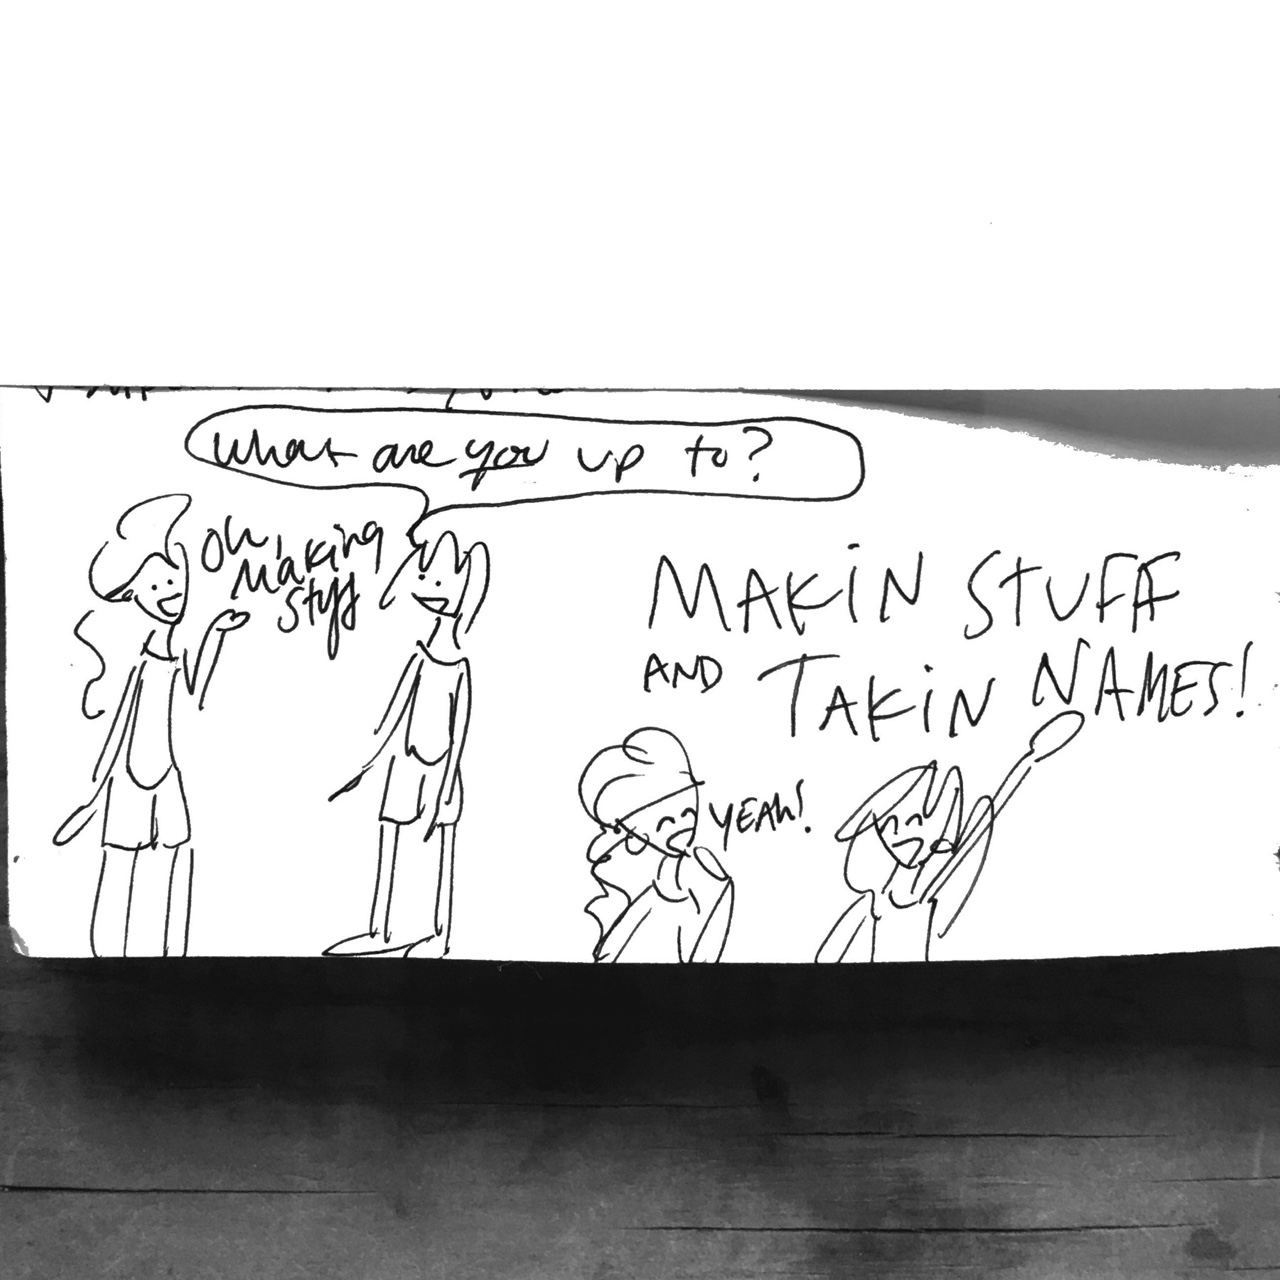 What are you up to?
Oh,
Making
Stuff
MAKiN STUFF
AND TAKiN NAMES!
YEAH!